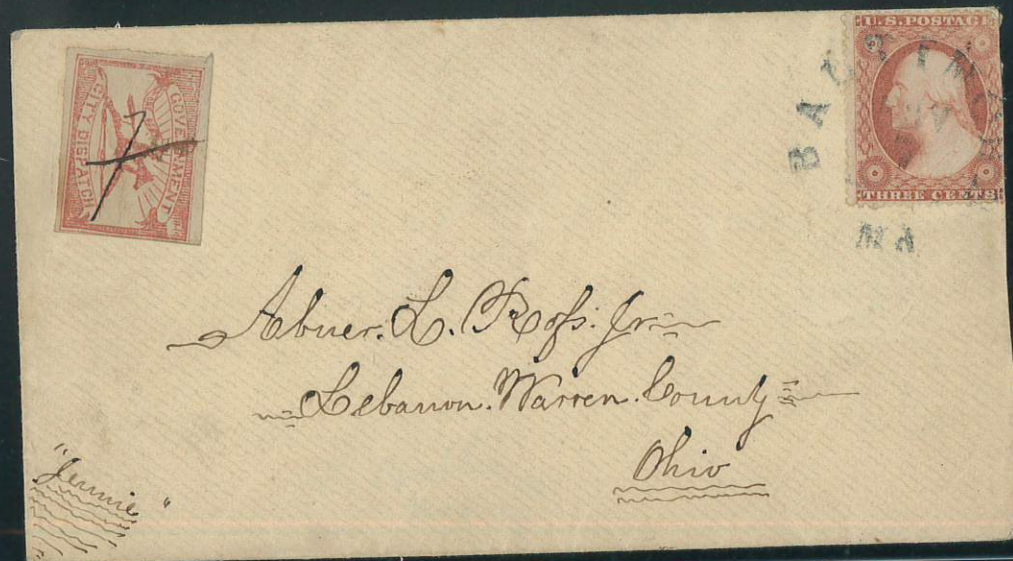 GOVERNMENT
CITY DISPATCH
U.S. POSTAGE
THREE CENTS
BALTIMORE
Md.
Abner. L. Roſs. Jr
Lebanon. Warren. County
Ohio
"Jennie"